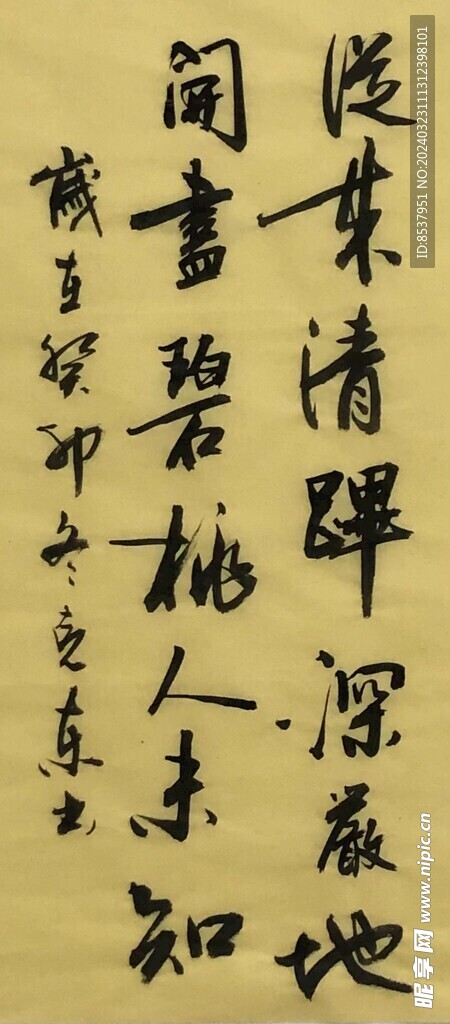 從来清蹕深嚴地
開盡碧桃人未知
歲在癸卯冬克东书
ID:8537951 NO:20240323111312398101
昵享网 www.nipic.cn